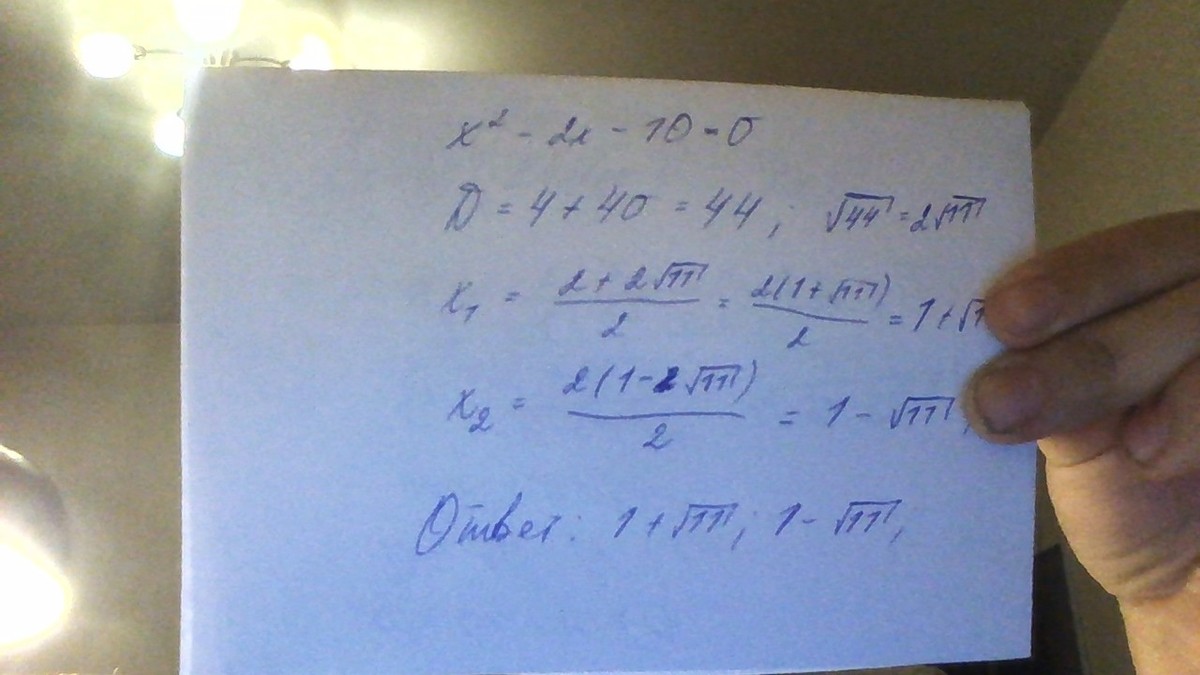 x² - 2x - 10 = 0
D = 4 + 40 = 44 ; √44 = 2√11
x₁ = (2 + 2√11)/2 = 2(1 + √11)/2 = 1 + √1
x₂ = 2(1 - 2√11)/2 = 1 - √11 ,
Ответ: 1 + √11 ; 1 - √11 ,